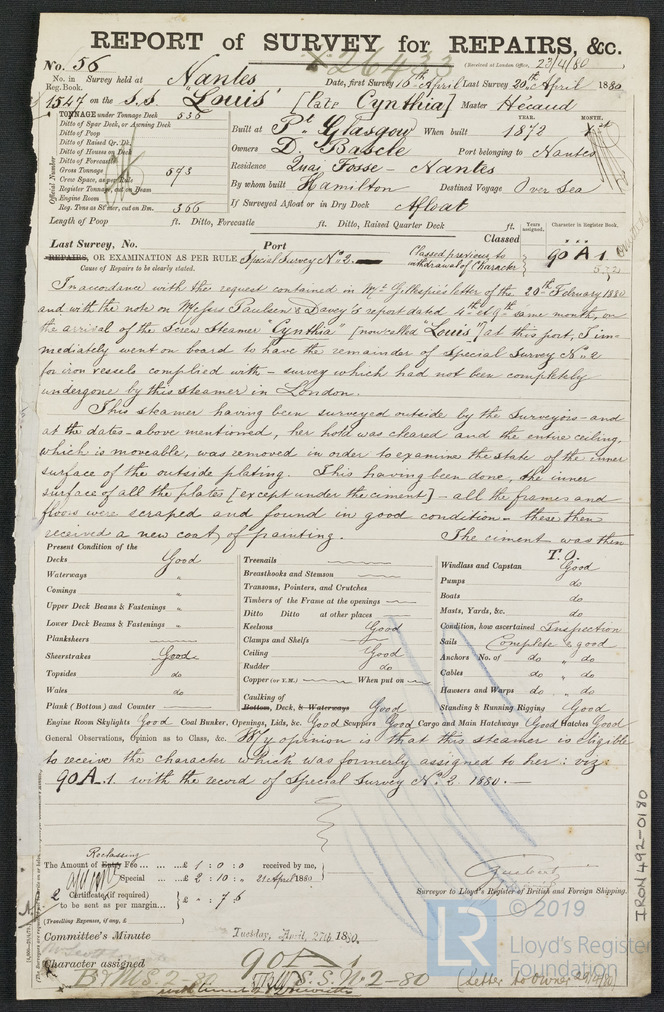 REPORT of SURVEY for REPAIRS, &c.
No. 56
26433
(Received at London Office, 23/4/80
No. in Reg. Book.
Survey held at Nantes
Date, first Survey 16th April Last Survey 20th April 1880
1547 on the S.S. "Louis" [late Cynthia] Master Hécaud
TONNAGE under Tonnage Deck 536
Ditto of Spar Deck, or Awning Deck
Ditto of Poop
Ditto of Raised Qr. Dk.
Ditto of Houses on Deck
Ditto of Forecastle
Gross Tonnage 573
Crew Space, as per Rule
Register Tonnage, cut on Beam
Engine Room
Reg. Tons as St'mer, cut on Bm. 366
Official Number
Built at Pt. Glasgow When built YEAR. 1872 MONTH.
Owners D. Bascle Port belonging to Nantes
Residence Quai Fosse - Nantes
By whom built Hamilton Destined Voyage Over Sea
If Surveyed Afloat or in Dry Dock Afloat
Length of Poop ft. Ditto, Forecastle ft. Ditto, Raised Quarter Deck ft.
Years assigned. Character in Register Book.
Last Survey, No. Port Classed
REPAIRS, OR EXAMINATION AS PER RULE Special Survey No. 2.
Classed previous to withdrawal of Character 90 A 1
Cause of Repairs to be clearly stated.
In accordance with the request contained in Mr. Gillespie's letter of the 20th February 1880
and with the note on Messrs Paulsen & Davey's report dated 4th & 9th same month, on
the arrival of the Screw Steamer "Cynthia" [now called "Louis"] at this port, I im-
mediately went on board to have the remainder of Special Survey No. 2
for iron vessels complied with - survey which had not been completely
undergone by this steamer in London.
This steamer having been surveyed outside by the Surveyors - and
at the dates - above mentioned, her hold was cleared and the entire ceiling,
which is moveable, was removed in order to examine the state of the inner
surface of the outside plating. This having been done, the inner
surface of all the plates [except under the cement] - all the frames and
floors were scraped and found in good condition - these then
received a new coat of painting. The cement was then
T.O.
Present Condition of the
Decks Good
Waterways "
Comings "
Upper Deck Beams & Fastenings "
Lower Deck Beams & Fastenings "
Planksheers
Sheerstrakes Good
Topsides do
Wales do
Plank (Bottom) and Counter
Treenails
Breasthooks and Stemson
Transoms, Pointers, and Crutches
Timbers of the Frame at the openings
Ditto Ditto at other places
Keelsons Good
Clamps and Shelfs
Ceiling Good
Rudder do
Copper (or Y.M.) When put on
Caulking of Bottom, Deck, & Waterways Good
Windlass and Capstan Good
Pumps do
Boats do
Masts, Yards, &c. do
Condition, how ascertained Inspection
Sails Complete & good
Anchors No. of do " do
Cables do " do
Hawsers and Warps do " do
Standing & Running Rigging Good
Engine Room Skylights Good Coal Bunker, Openings, Lids, &c. Good Scuppers Good Cargo and Main Hatchways Good Hatches Good
General Observations, Opinion as to Class, &c. My opinion is that this steamer is eligible
to receive the character which was formerly assigned to her: viz:
90 A.1. with the record of Special Survey No. 2. 1880. -
Reclassing
The Amount of Entry Fee ... £ 1 : 0 : 0 received by me,
Special ... £ 2 : 10 : " 21 April 1880
Certificate (if required) £ " : 7 : 6
to be sent as per margin...
(Travelling Expenses, if any, £ )
Guibert
Surveyor to Lloyd's Register of British and Foreign Shipping.
Committee's Minute Tuesday, April, 27th 1880.
Character assigned 90 A 1
B&MS. 2-80 S.S. No. 2-80
(Letter to Owner
IRON 492-0180
LR
© 2019
Lloyd's Register
Foundation